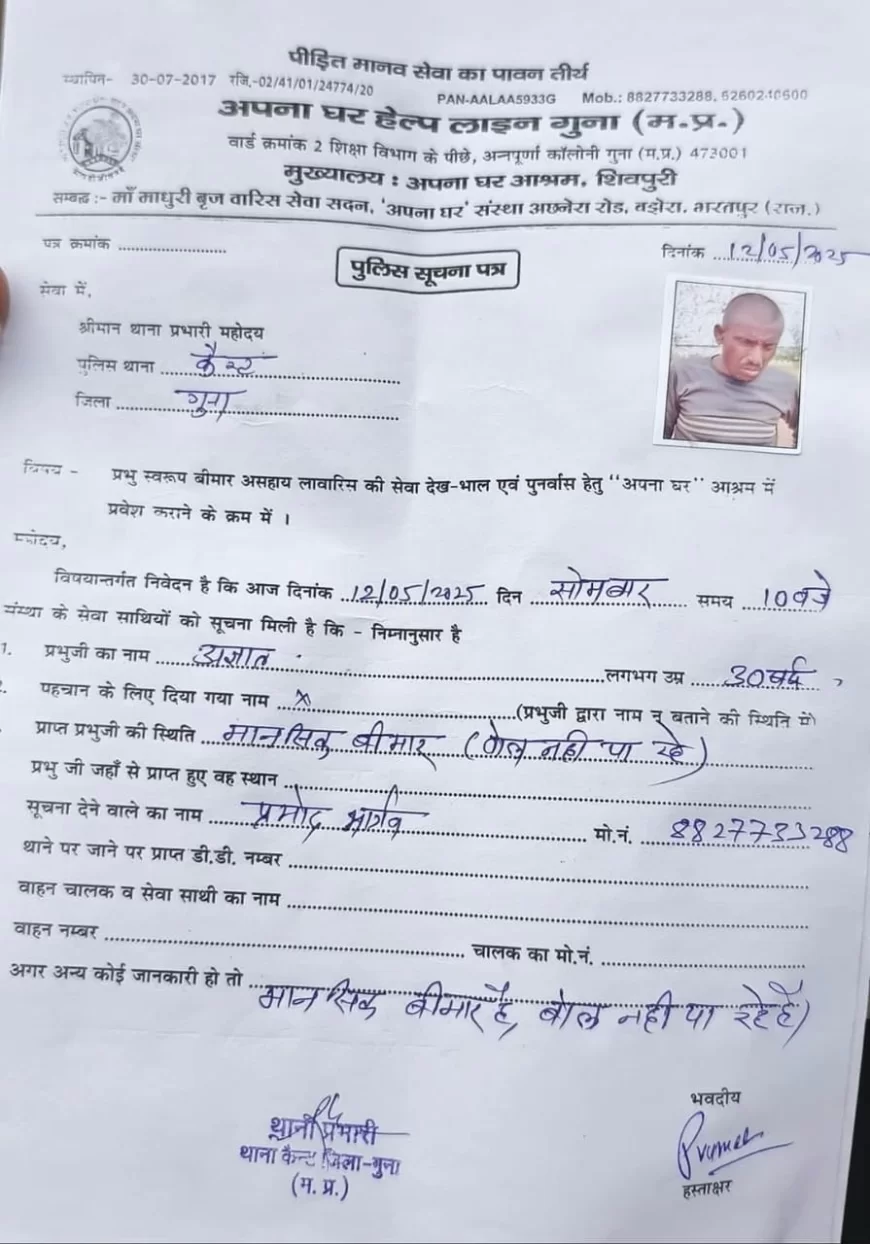 पीड़ित मानव सेवा का पावन तीर्थ
स्थापित- 30-07-2017 रजि.-02/41/01/24774/20 PAN-AALAA5933G Mob.: 8827733288, 6260240600
अपना घर हेल्प लाइन गुना (म.प्र.)
वार्ड क्रमांक 2 शिक्षा विभाग के पीछे, अन्नपूर्णा कॉलोनी गुना (म.प्र.) 473001
मुख्यालय : अपना घर आश्रम, शिवपुरी
सम्बद्ध :- माँ माधुरी बृज वारिस सेवा सदन, 'अपना घर' संस्था अछनेरा रोड, बझेरा, भरतपुर (राज.)
पत्र क्रमांक
दिनांक 12/05/2025
पुलिस सूचना पत्र
सेवा में,
श्रीमान थाना प्रभारी महोदय
पुलिस थाना कैन्ट
जिला गुना
विषय - प्रभु स्वरूप बीमार असहाय लावारिस की सेवा देख-भाल एवं पुनर्वास हेतु "अपना घर" आश्रम में
प्रवेश कराने के क्रम में ।
महोदय,
विषयान्तर्गत निवेदन है कि आज दिनांक 12/05/2025 दिन सोमवार समय 10 बजे
संस्था के सेवा साथियों को सूचना मिली है कि - निम्नानुसार है
1. प्रभुजी का नाम अज्ञात लगभग उम्र 30 वर्ष
2. पहचान के लिए दिया गया नाम x (प्रभुजी द्वारा नाम न बताने की स्थिति में)
प्राप्त प्रभुजी की स्थिति मानसिक बीमार (बोल नही पा रहे)
प्रभु जी जहाँ से प्राप्त हुए वह स्थान
सूचना देने वाले का नाम प्रमोद भार्गव मो.नं. 8827733288
थाने पर जाने पर प्राप्त डी.डी. नम्बर
वाहन चालक व सेवा साथी का नाम
वाहन नम्बर चालक का मो.नं.
अगर अन्य कोई जानकारी हो तो
मानसिक बीमार है, बोल नही पा रहे है)
भवदीय
थाना प्रभारी
थाना कैन्ट जिला-गुना
(म. प्र.)
हस्ताक्षर